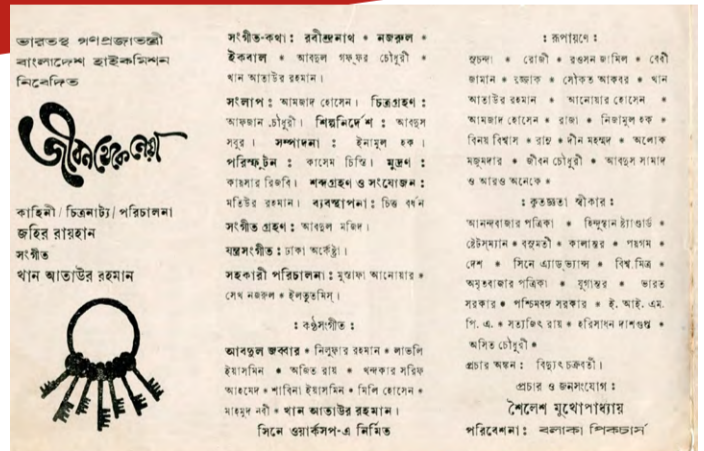 ভারতস্থ গণপ্রজাতন্ত্রী
বাংলাদেশ হাইকমিশন
নিবেদিত
জীবন থেকে নেয়া
কাহিনী / চিত্রনাট্য / পরিচালনা
জহির রায়হান
সংগীত
খান আতাউর রহমান
সংগীত-কথা : রবীন্দ্রনাথ * নজরুল *
ইকবাল * আবদুল গফ্ফর চৌধুরী *
খান আতাউর রহমান।
সংলাপ : আমজাদ হোসেন। চিত্রগ্রহণ :
আফজান চৌধুরী। শিল্পনির্দেশ : আবদুস
সবুর। সম্পাদনা : ইনামুল হক।
পরিস্ফুটন : কাসেম চিস্তি। মুদ্রণ :
কায়সার রিজবি। শব্দগ্রহণ ও সংযোজন :
মতিউর রহমান। ব্যবস্থাপনা : চিত্ত বর্ধন
সংগীত গ্রহণ : আবদুল মজিদ।
যন্ত্রসংগীত : ঢাকা অর্কেষ্ট্রা।
সহকারী পরিচালনা : মুস্তাফা আনোয়ার *
সেখ নজরুল * ইলতুতমিস্।
: কণ্ঠসংগীত :
আবদুল জব্বার * নিলুফার রহমান * লাভলি
ইয়াসমিন * অজিত রায় * খন্দকার সরিফ
আহমেদ * শাবিনা ইয়াসমিন * মিলি হোসেন *
মাহমুদ নবী * খান আতাউর রহমান।
সিনে ওয়ার্কসপ-এ নির্মিত
: রূপায়ণে :
সুচন্দা * রোজী * রওসন জামিল * বেবী
জামান * রজ্জাক * সৌকত আকবর * খান
আতাউর রহমান * আনোয়ার হোসেন *
আমজাদ হোসেন * রাজা * নিজামুল হক *
বিনয় বিশ্বাস * রাসু * দীন মহম্মদ * অলোক
মজুমদার * জীবন চৌধুরী * আবদুস সামাদ
ও আরও অনেকে *
: কৃতজ্ঞতা স্বীকার :
আনন্দবাজার পত্রিকা * হিন্দুস্থান ষ্ট্যাণ্ডার্ড *
ষ্টেটস্‌ম্যান * বসুমতী * কালান্তর * পয়গম *
দেশ * সিনে এ্যাড্‌ভ্যান্স * বিশ্ব মিত্র *
অমৃতবাজার পত্রিকা * যুগান্তর * ভারত
সরকার * পশ্চিমবঙ্গ সরকার * ই. আই. এম.
পি. এ. * সত্যজিৎ রায় * হরিসাধন দাশগুপ্ত *
অসিত চৌধুরী *
প্রচার অঙ্কন : বিদ্যুৎ চক্রবর্তী।
প্রচার ও জনসংযোগ :
শৈলেশ মুখোপাধ্যায়
পরিবেশনা : বলাকা পিকচার্স